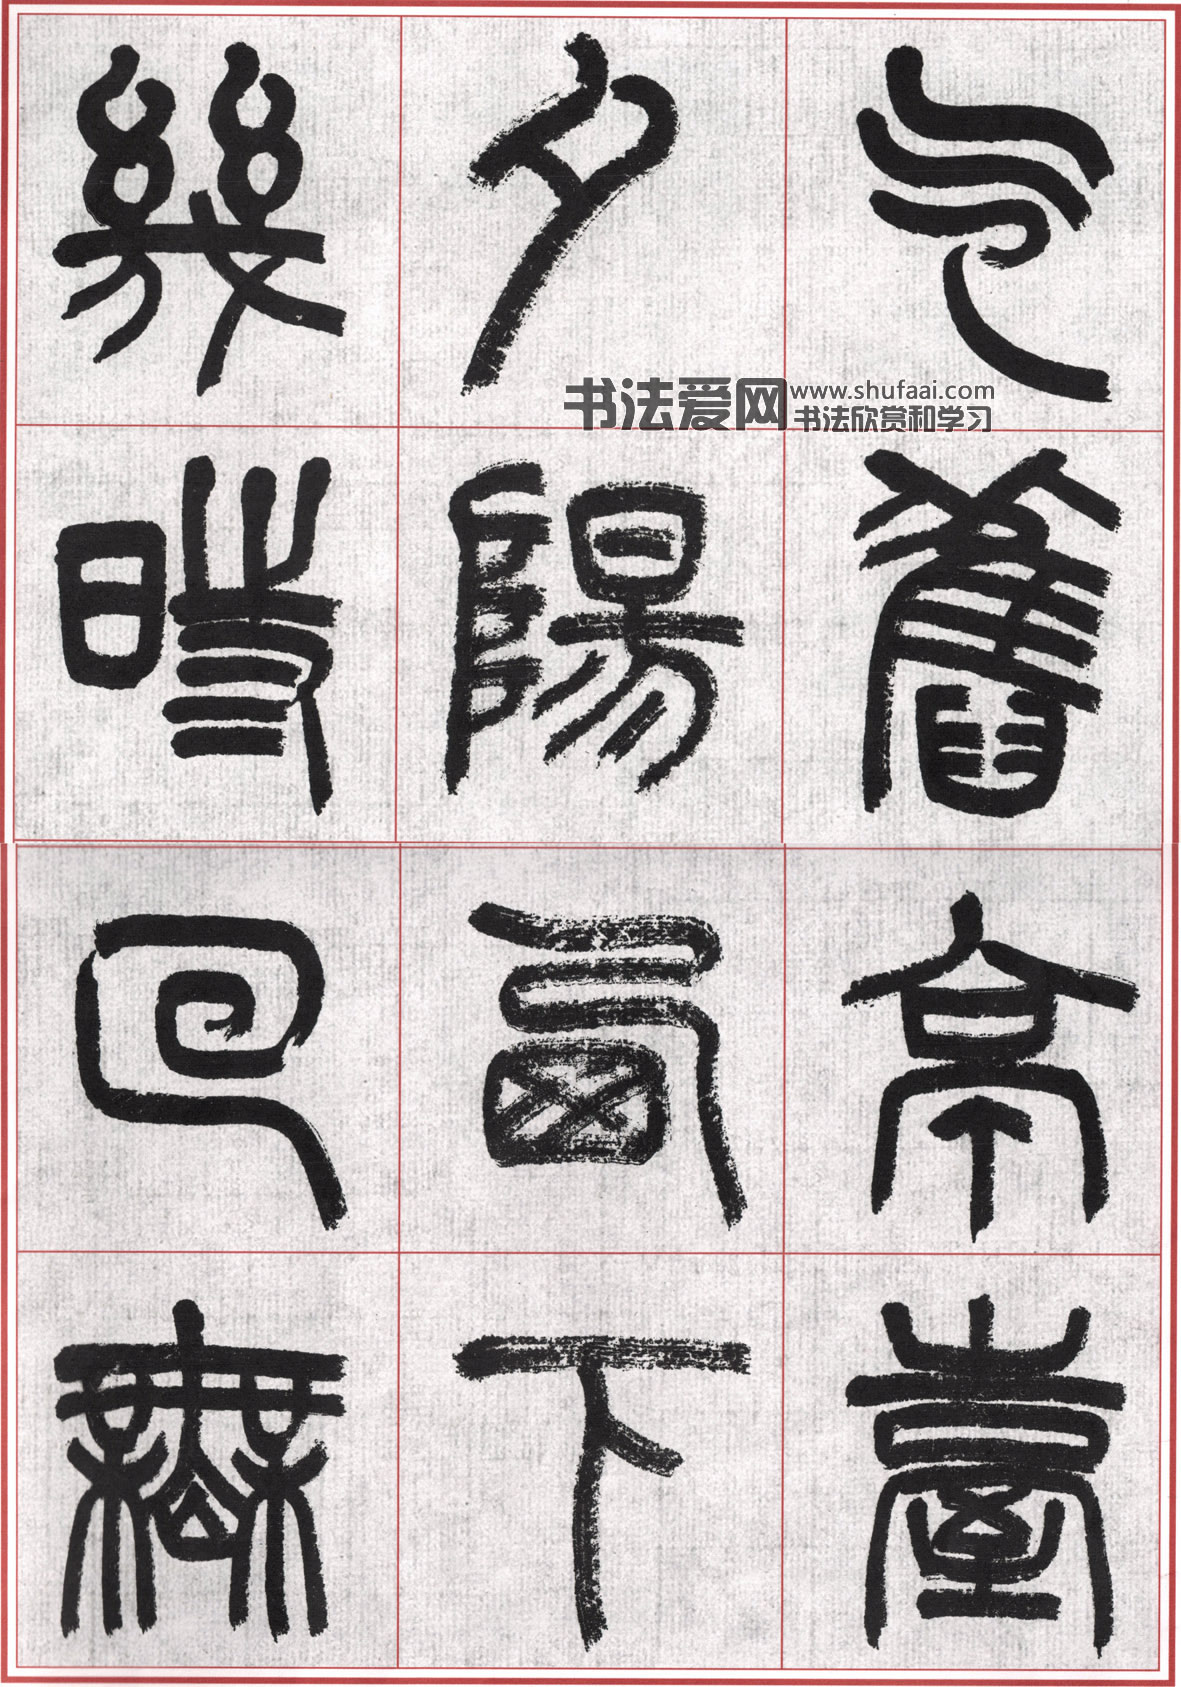 气舊亭臺
夕陽西下
幾時回無
书法爱网
www.shufaai.com
书法欣赏和学习